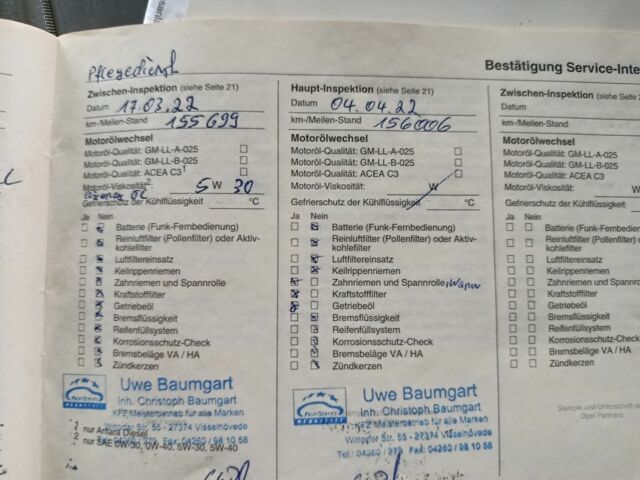 Bestätigung Service-Inte
Pflegedienst
Zwischen-Inspektion (siehe Seite 21)
Datum 17.03.22
km-/Meilen-Stand 155699
Motorölwechsel
Motoröl-Qualität: GM-LL-A-025
Motoröl-Qualität: GM-LL-B-025
Motoröl-Qualität: ACEA C3¹
Motoröl-Viskosität²: 5 W 30
Gefrierschutz der Kühlflüssigkeit °C
Ja Nein
Batterie (Funk-Fernbedienung)
Reinluftfilter (Pollenfilter) oder Aktiv-
kohlefilter
Luftfiltereinsatz
Keilrippenriemen
Zahnriemen und Spannrolle
Kraftstofffilter
Getriebeöl
Bremsflüssigkeit
Reifenfüllsystem
Korrosionsschutz-Check
Bremsbeläge VA / HA
Zündkerzen
Uwe Baumgart
Inh. Christoph Baumgart
KFZ Meisterbetrieb für alle Marken
Str. 55 - 27374 Visselhövede
Fax: 04260 / 98 10 58
¹ nur Antara Diesel
² nur SAE 0W-30, 0W-40, 5W-30, 5W-40
Haupt-Inspektion (siehe Seite 21)
Datum 04.04.22
km-/Meilen-Stand 156006
Motorölwechsel
Motoröl-Qualität: GM-LL-A-025
Motoröl-Qualität: GM-LL-B-025
Motoröl-Qualität: ACEA C3
Motoröl-Viskosität: W
Gefrierschutz der Kühlflüssigkeit °C
Ja Nein
Batterie (Funk-Fernbedienung)
Reinluftfilter (Pollenfilter) oder Aktiv-
kohlefilter
Luftfiltereinsatz
Keilrippenriemen
Zahnriemen und Spannrolle
Kraftstofffilter
Getriebeöl
Bremsflüssigkeit
Reifenfüllsystem
Korrosionsschutz-Check
Bremsbeläge VA / HA
Zündkerzen
Uwe Baumgart
Inh. Christoph Baumgart
KFZ Meisterbetrieb für alle Marken
Str. 55 - 27374 Visselhövede
Fax: 04260 / 98 10 58
Zwischen-Inspektion (siehe
Datum
km-/Meilen-Stand
Motorölwechsel
Motoröl-Qualität: GM-LL-A-025
Motoröl-Qualität: GM-LL-B-025
Motoröl-Qualität: ACEA C3
Motoröl-Viskosität:
Gefrierschutz der Kühlflüssigk
Ja Nein
Batterie (Funk-Fernb
Reinluftfilter (Pollenf
kohlefilter
Luftfiltereinsatz
Keilrippenriemen
Zahnriemen und Sp
Kraftstofffilter
Getriebeöl
Bremsflüssigkeit
Reifenfüllsystem
Korrosionsschutz-
Bremsbeläge VA /
Zündkerzen
Stempel und Unterschrift de
Opel Partners